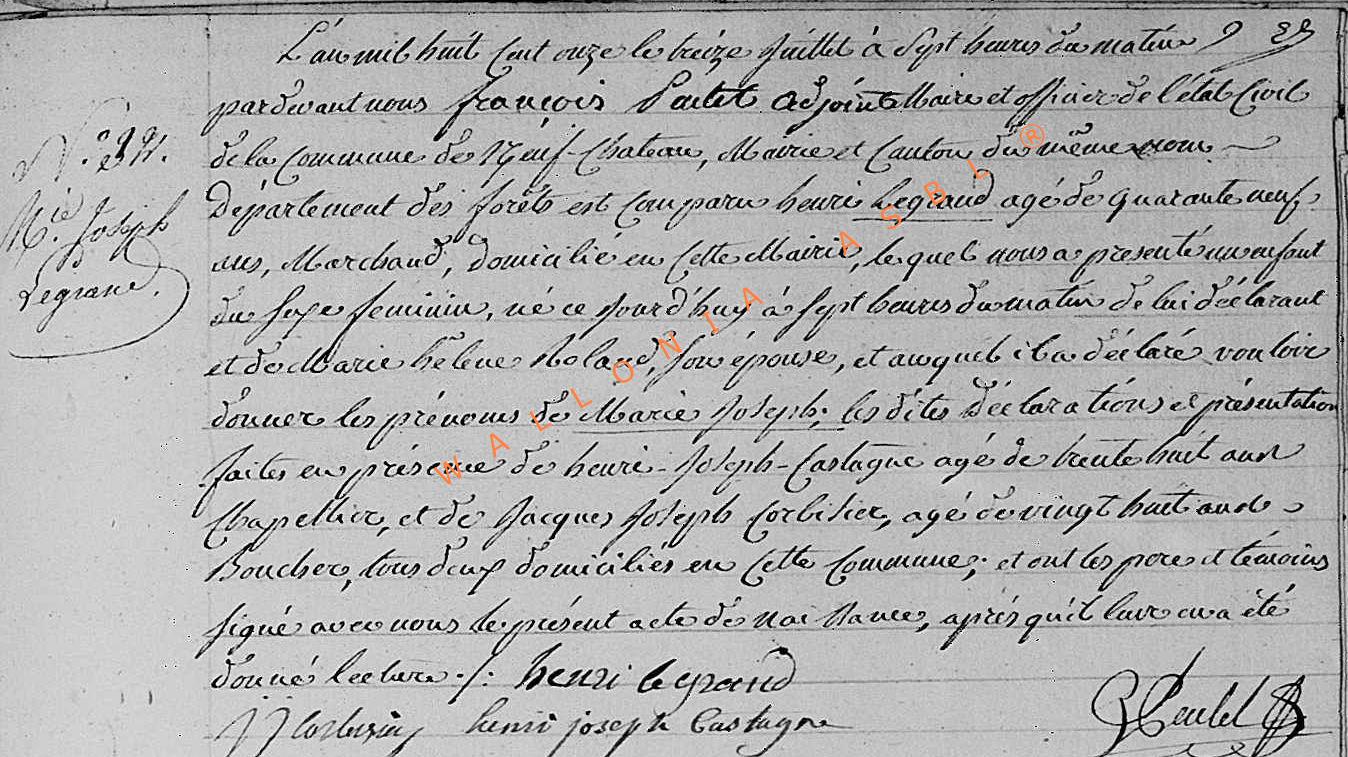 L'an mil huit cent onze le treize Juillet à Sept heures du matin
pardevant nous françois adjoint Maire et officier de l'état Civil
de la Commune de Neuf-Chateau, Mairie et Canton du même nom
Département des forêts est comparu henri Legrand agé de quarante neuf
ans, Marchand, domicilié en Cette Mairie, lequel nous a présenté un enfant
du sexe feminin, né ce jourd'huy à sept heures du matin de lui déclarant
et de Marie hélene Roland, son épouse, et auquel il a déclaré vouloir
donner les prénoms de Marie Joseph; les dites déclarations et présentation
faites en présence de henri-Joseph-Castagne agé de trente huit ans
Chapellier, et de Jacques Joseph Corbisier, agé de vingt huit ans
Boucher, tous deux domiciliés en Cette Commune; et ont les pere et témoins
signé avec nous le présent acte de naissance, après qu'il leur en a été
donné lecture ./:
henri legrand
JJ Corbisier henri joseph Castagne
N.º
M.ie Joseph
Legrand.
WALLONIA ASBL ®